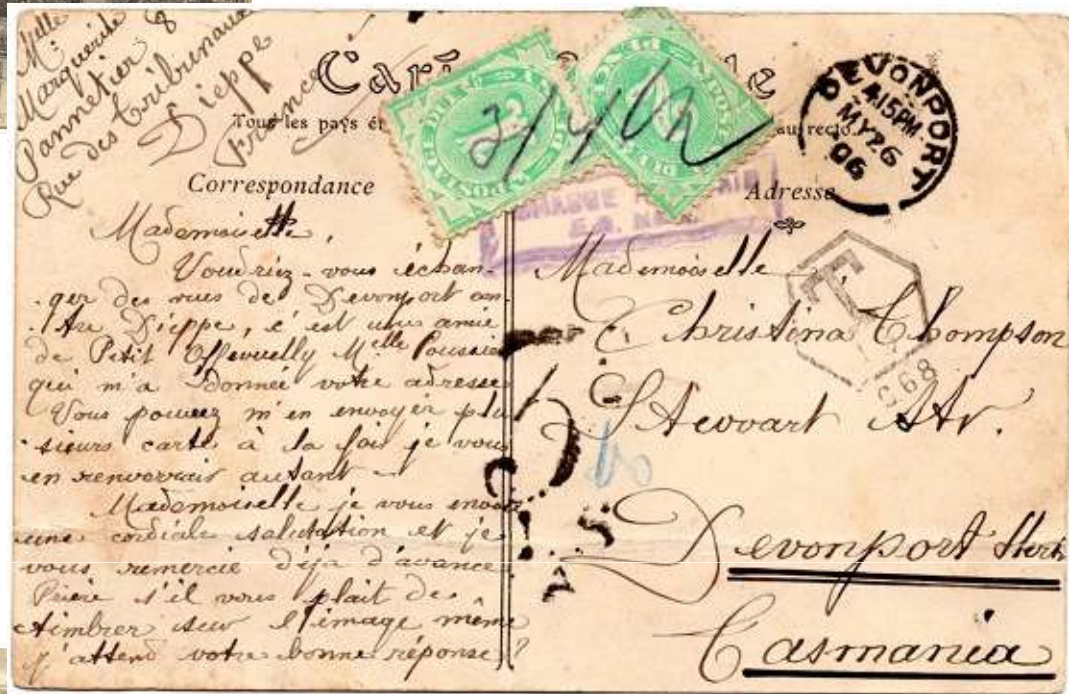 Mlle
Marguerite
Pannetier 8
Rue des Tribunaux
Dieppe
France
Tous les pays
au recto
Correspondance
Adresse
DEVONPORT
4 15 PM
MY 26
06
POSTAGE DUE
POSTAGE DUE
CHARGE
Mademoiselle,
Voudriez-vous échan-
-ger des vues de Devonport
Dieppe, c'est une amie
de Petit Mlle
qui m'a donnée votre adresse
Vous pouvez m'en envoyer plu
-sieurs carte à la fois je vous
en renverrais autant
Mademoiselle je vous envoie
une cordiale salutation et je
vous remercie déja d'avance
Prière s'il vous plait de
timbrer sur l'image même
j'attend votre bonne réponse
Mademoiselle
Christina Thompson
Str.
Devonport
Tasmania
T